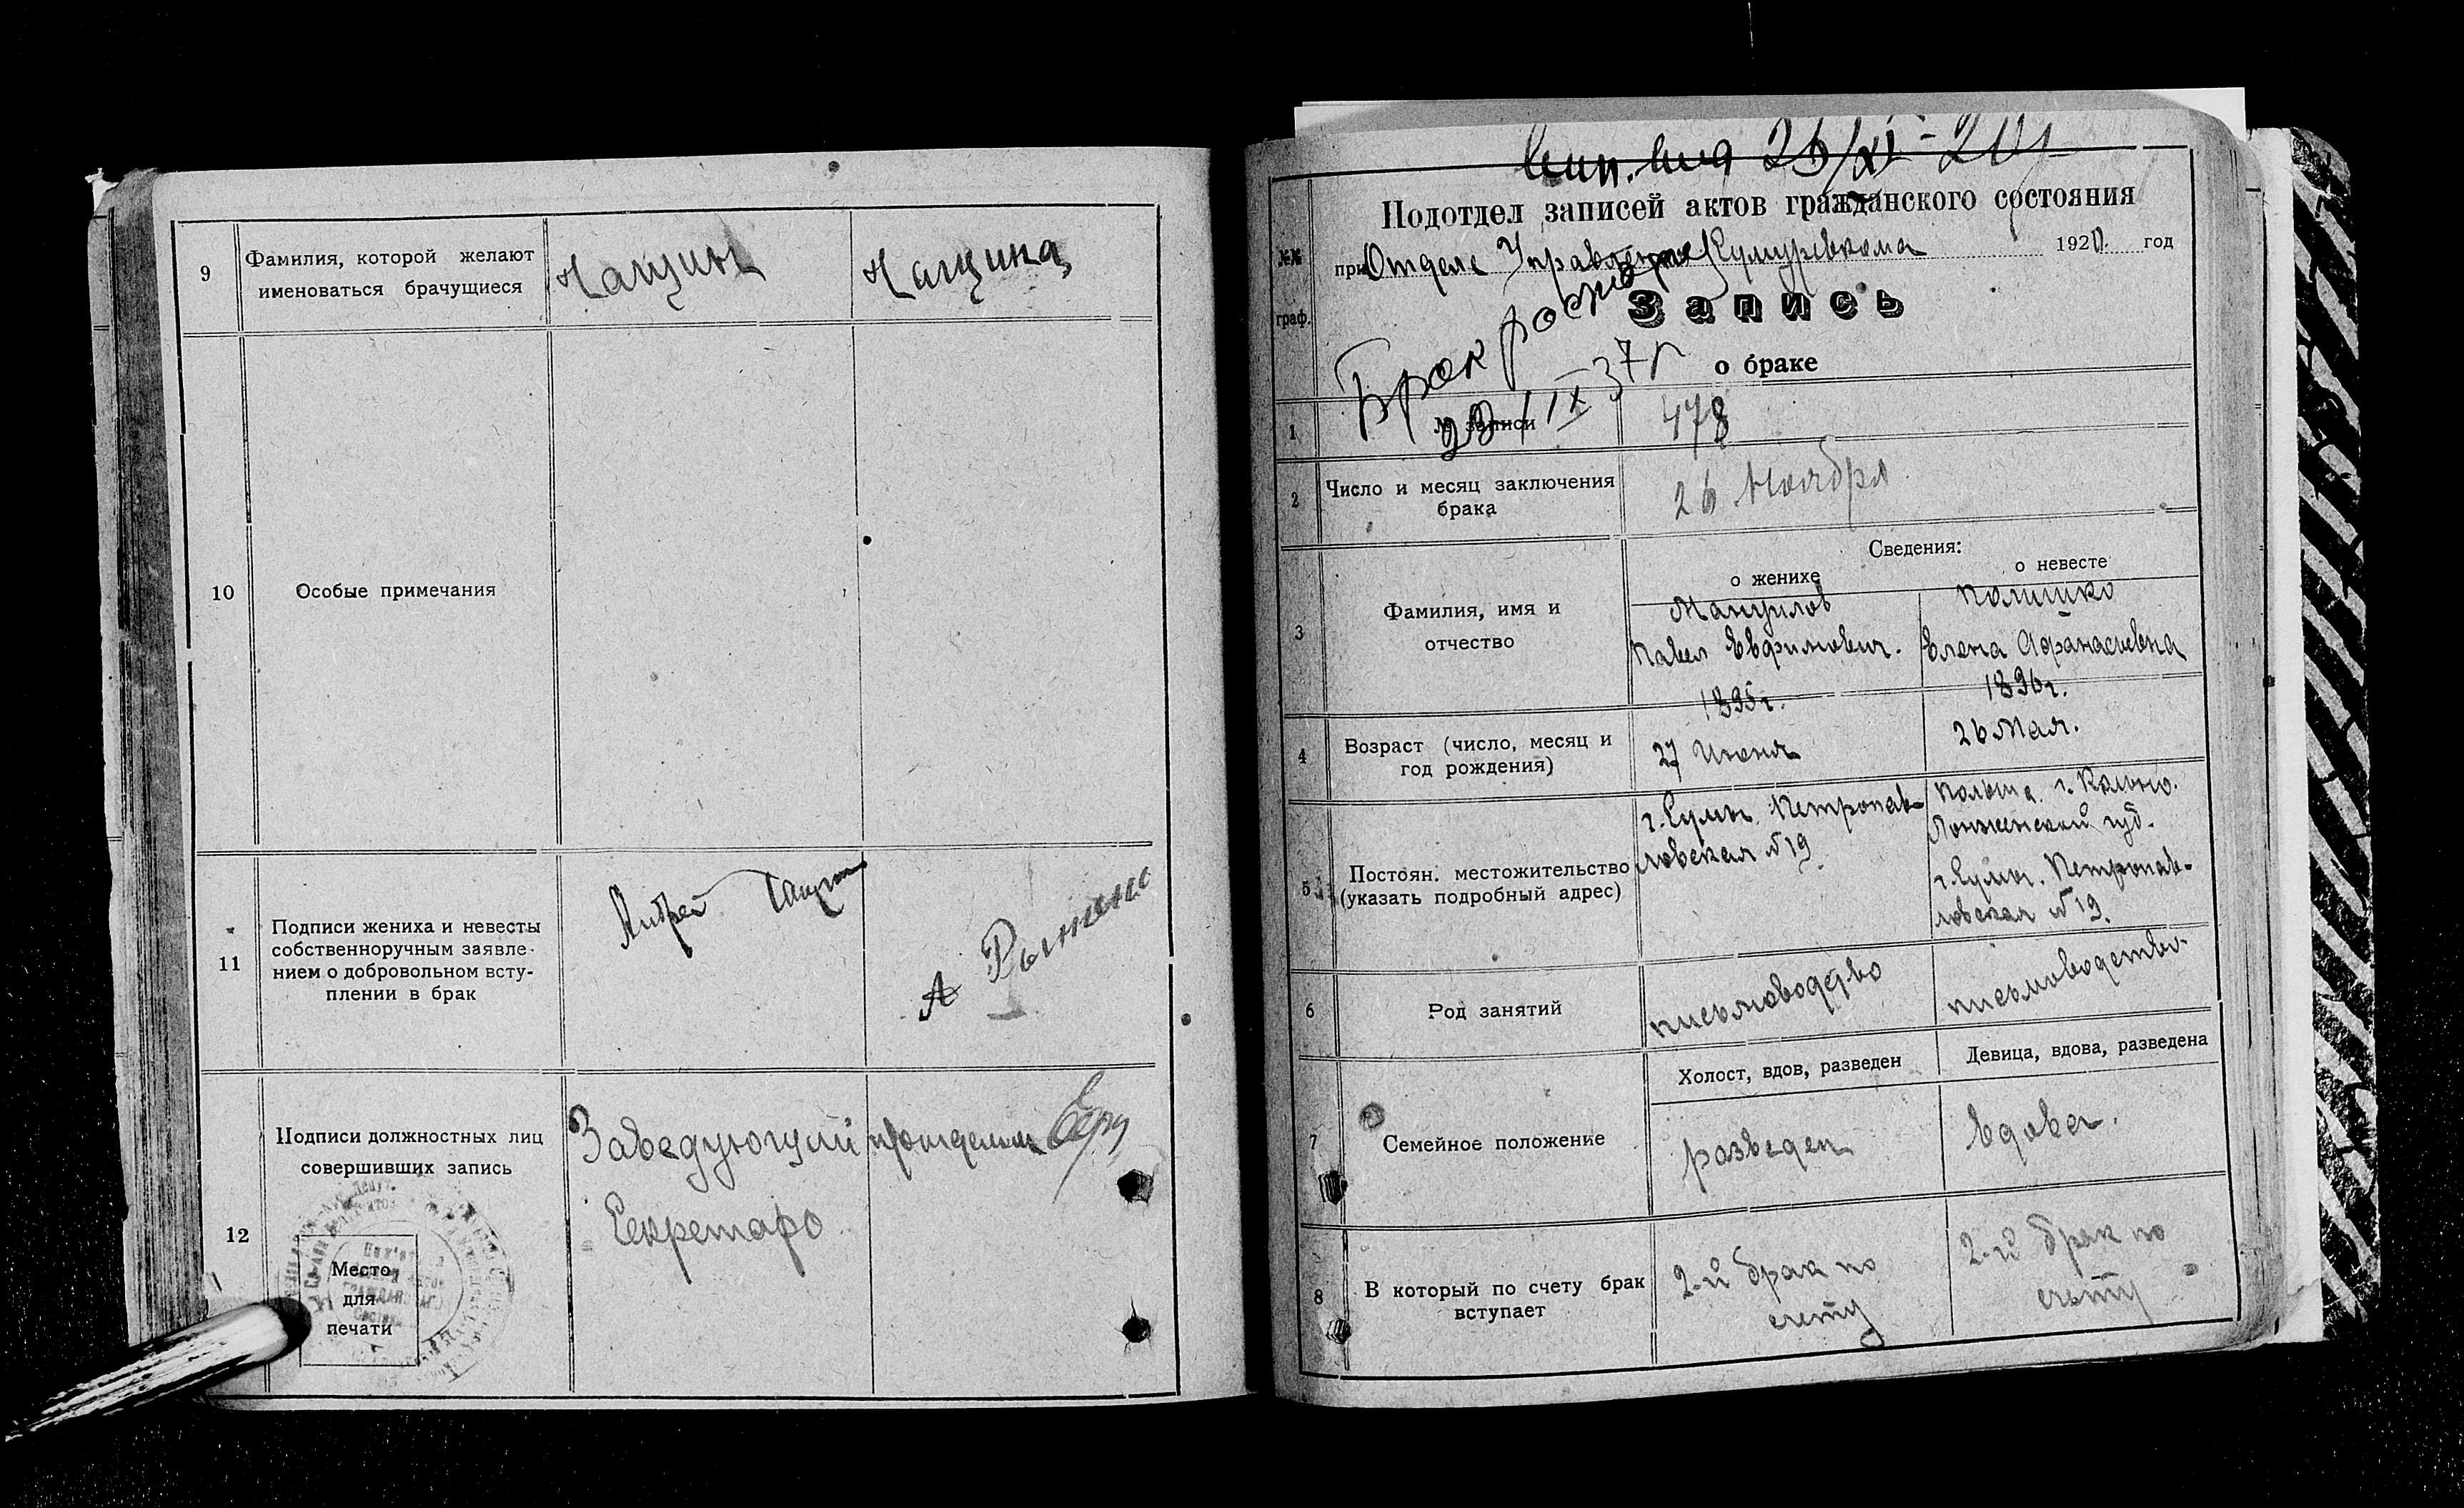 9
Фамилия, которой желают
именоваться брачущиеся
Чащин
Чащина
10
Особые примечания
11
Подписи жениха и невесты
собственноручным заявле-
нием о добровольном всту-
плении в брак
Андрей Чащин
А
12
Подписи должностных лиц
совершивших запись
Заведующий
Секретарь
Место
для
печати
26/XI-20 г
Подотдел записей актов гражданского состояния
№№
граф.
при Отделе Управления Сумуревкома 1920. год
Запись
о браке
Брак расторг
20/IX 37 г
1
№ записи
478
2
Число и месяц заключения
брака
26 Ноября
Сведения:
о женихе
о невесте
3
Фамилия, имя и
отчество
Мануилов
Павел Евфимович.
Елена Афанасьевна
4
Возраст (число, месяц и
год рождения)
1895 г.
27 Июня
1896 г.
26 Мая.
5
Постоян. местожительство
(указать подробный адрес)
г. Сумы. Петропав-
ловская № 19
Польша г. Кольно.
Ломженской губ.
г. Сумы. Петропав-
ловская № 19.
6
Род занятий
письмоводство
письмоводство.
7
Семейное положение
Холост, вдов, разведен
Девица, вдова, разведена
разведен
вдова.
8
В который по счету брак
вступает
2-й брак по
счету
2-й брак по
счету